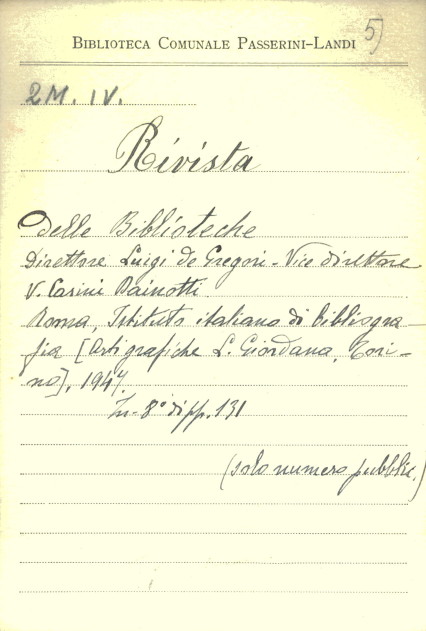 BIBLIOTECA COMUNALE PASSERINI-LANDI
5)
2M. IV.
Rivista
delle Biblioteche
Direttore Luigi de Gregori - Vice direttore
V. Carini Dainotti
Roma, Istituto italiano di bibliogra-
fia [Arti grafiche L. Giordana, Tori-
no], 1947.
In-8° di pp. 131
(solo numero pubblic.)